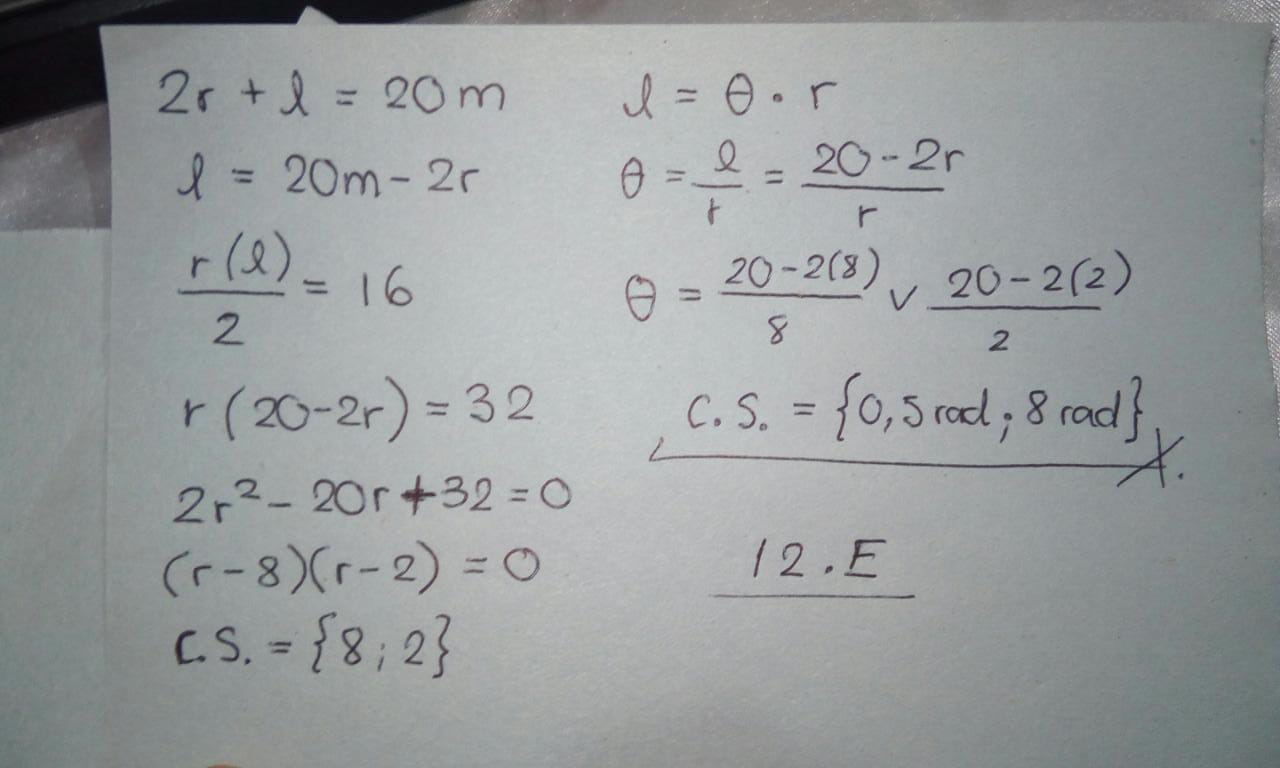 2r + l = 20m
l = 20m - 2r
r(l)/2 = 16
r(20-2r) = 32
2r² - 20r + 32 = 0
(r-8)(r-2) = 0
C.S. = {8; 2}
l = θ · r
θ = l/r = 20-2r/r
θ = 20-2(8)/8 ∨ 20-2(2)/2
C.S. = {0,5 rad; 8 rad}
12.E